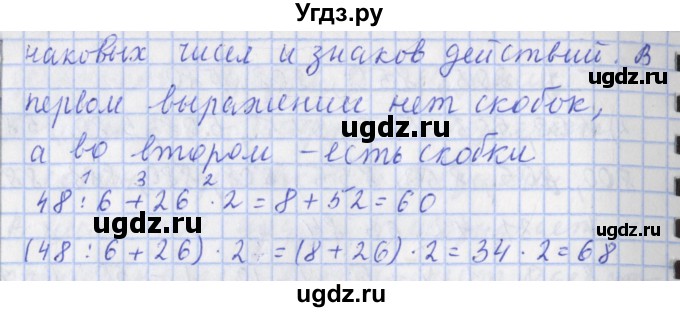 Угдз.ру
наковых чисел и знаков действий. В
первом выражении нет скобок,
ugdz.ru
ugdz.ru
а во втором – есть скобки
1 3 2
48 : 6 + 26 · 2 = 8 + 52 = 60
ugdz.ru
ugdz.ru
(48 : 6 + 26) · 2 = (8 + 26) · 2 = 34 · 2 = 68
ugdz.ru
ugdz.ru